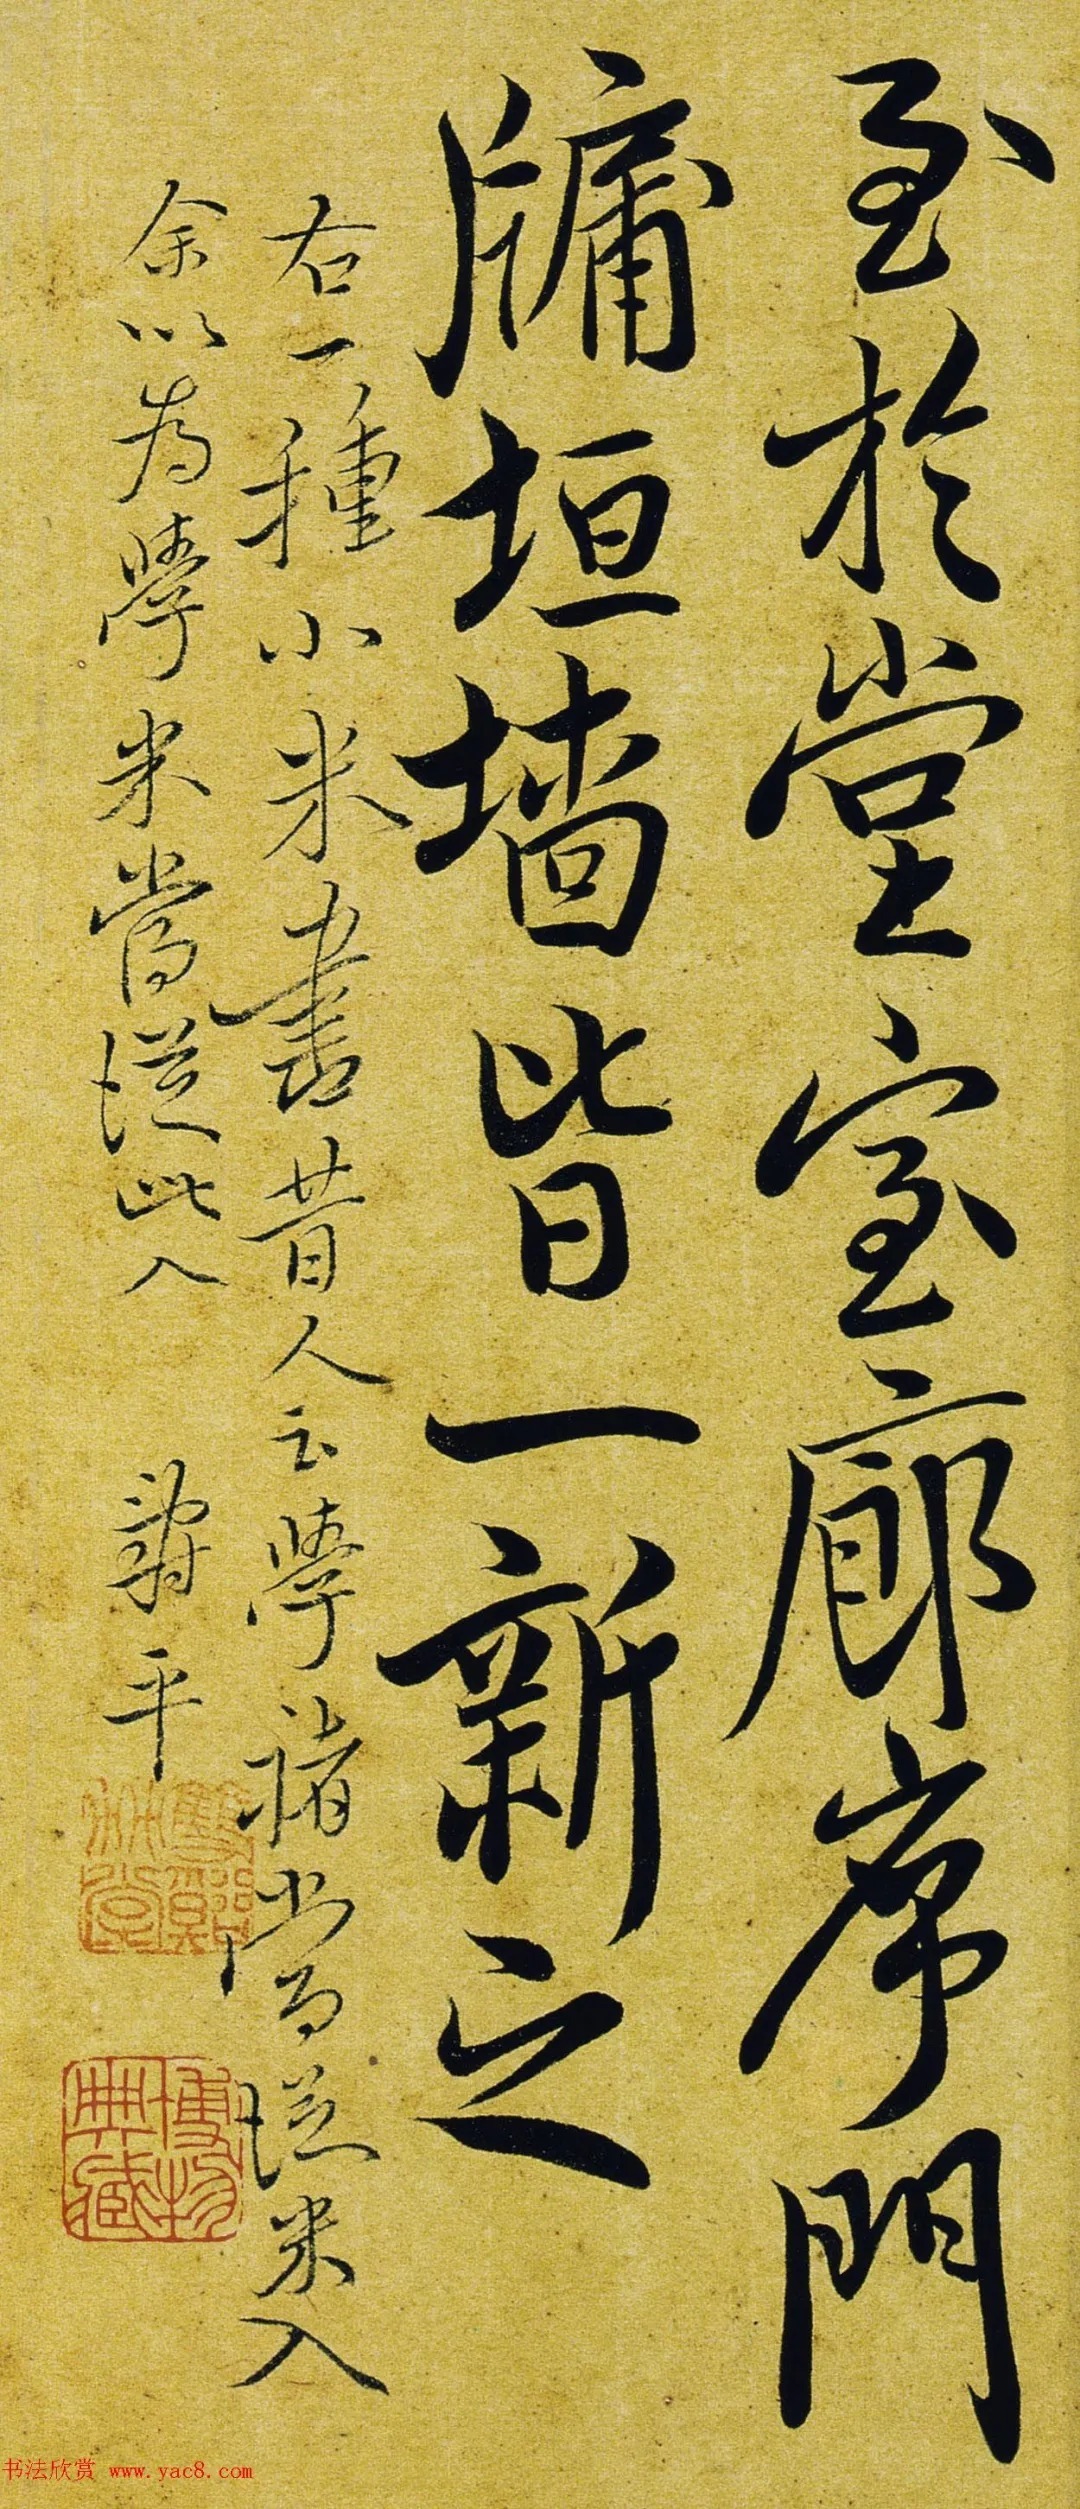 至於堂室廊席門
牖垣墙皆一新之
右一種小米書昔人云學褚當從米入
余以為學米當從此入 平
博物
典藏
书法欣赏 www.yac8.com